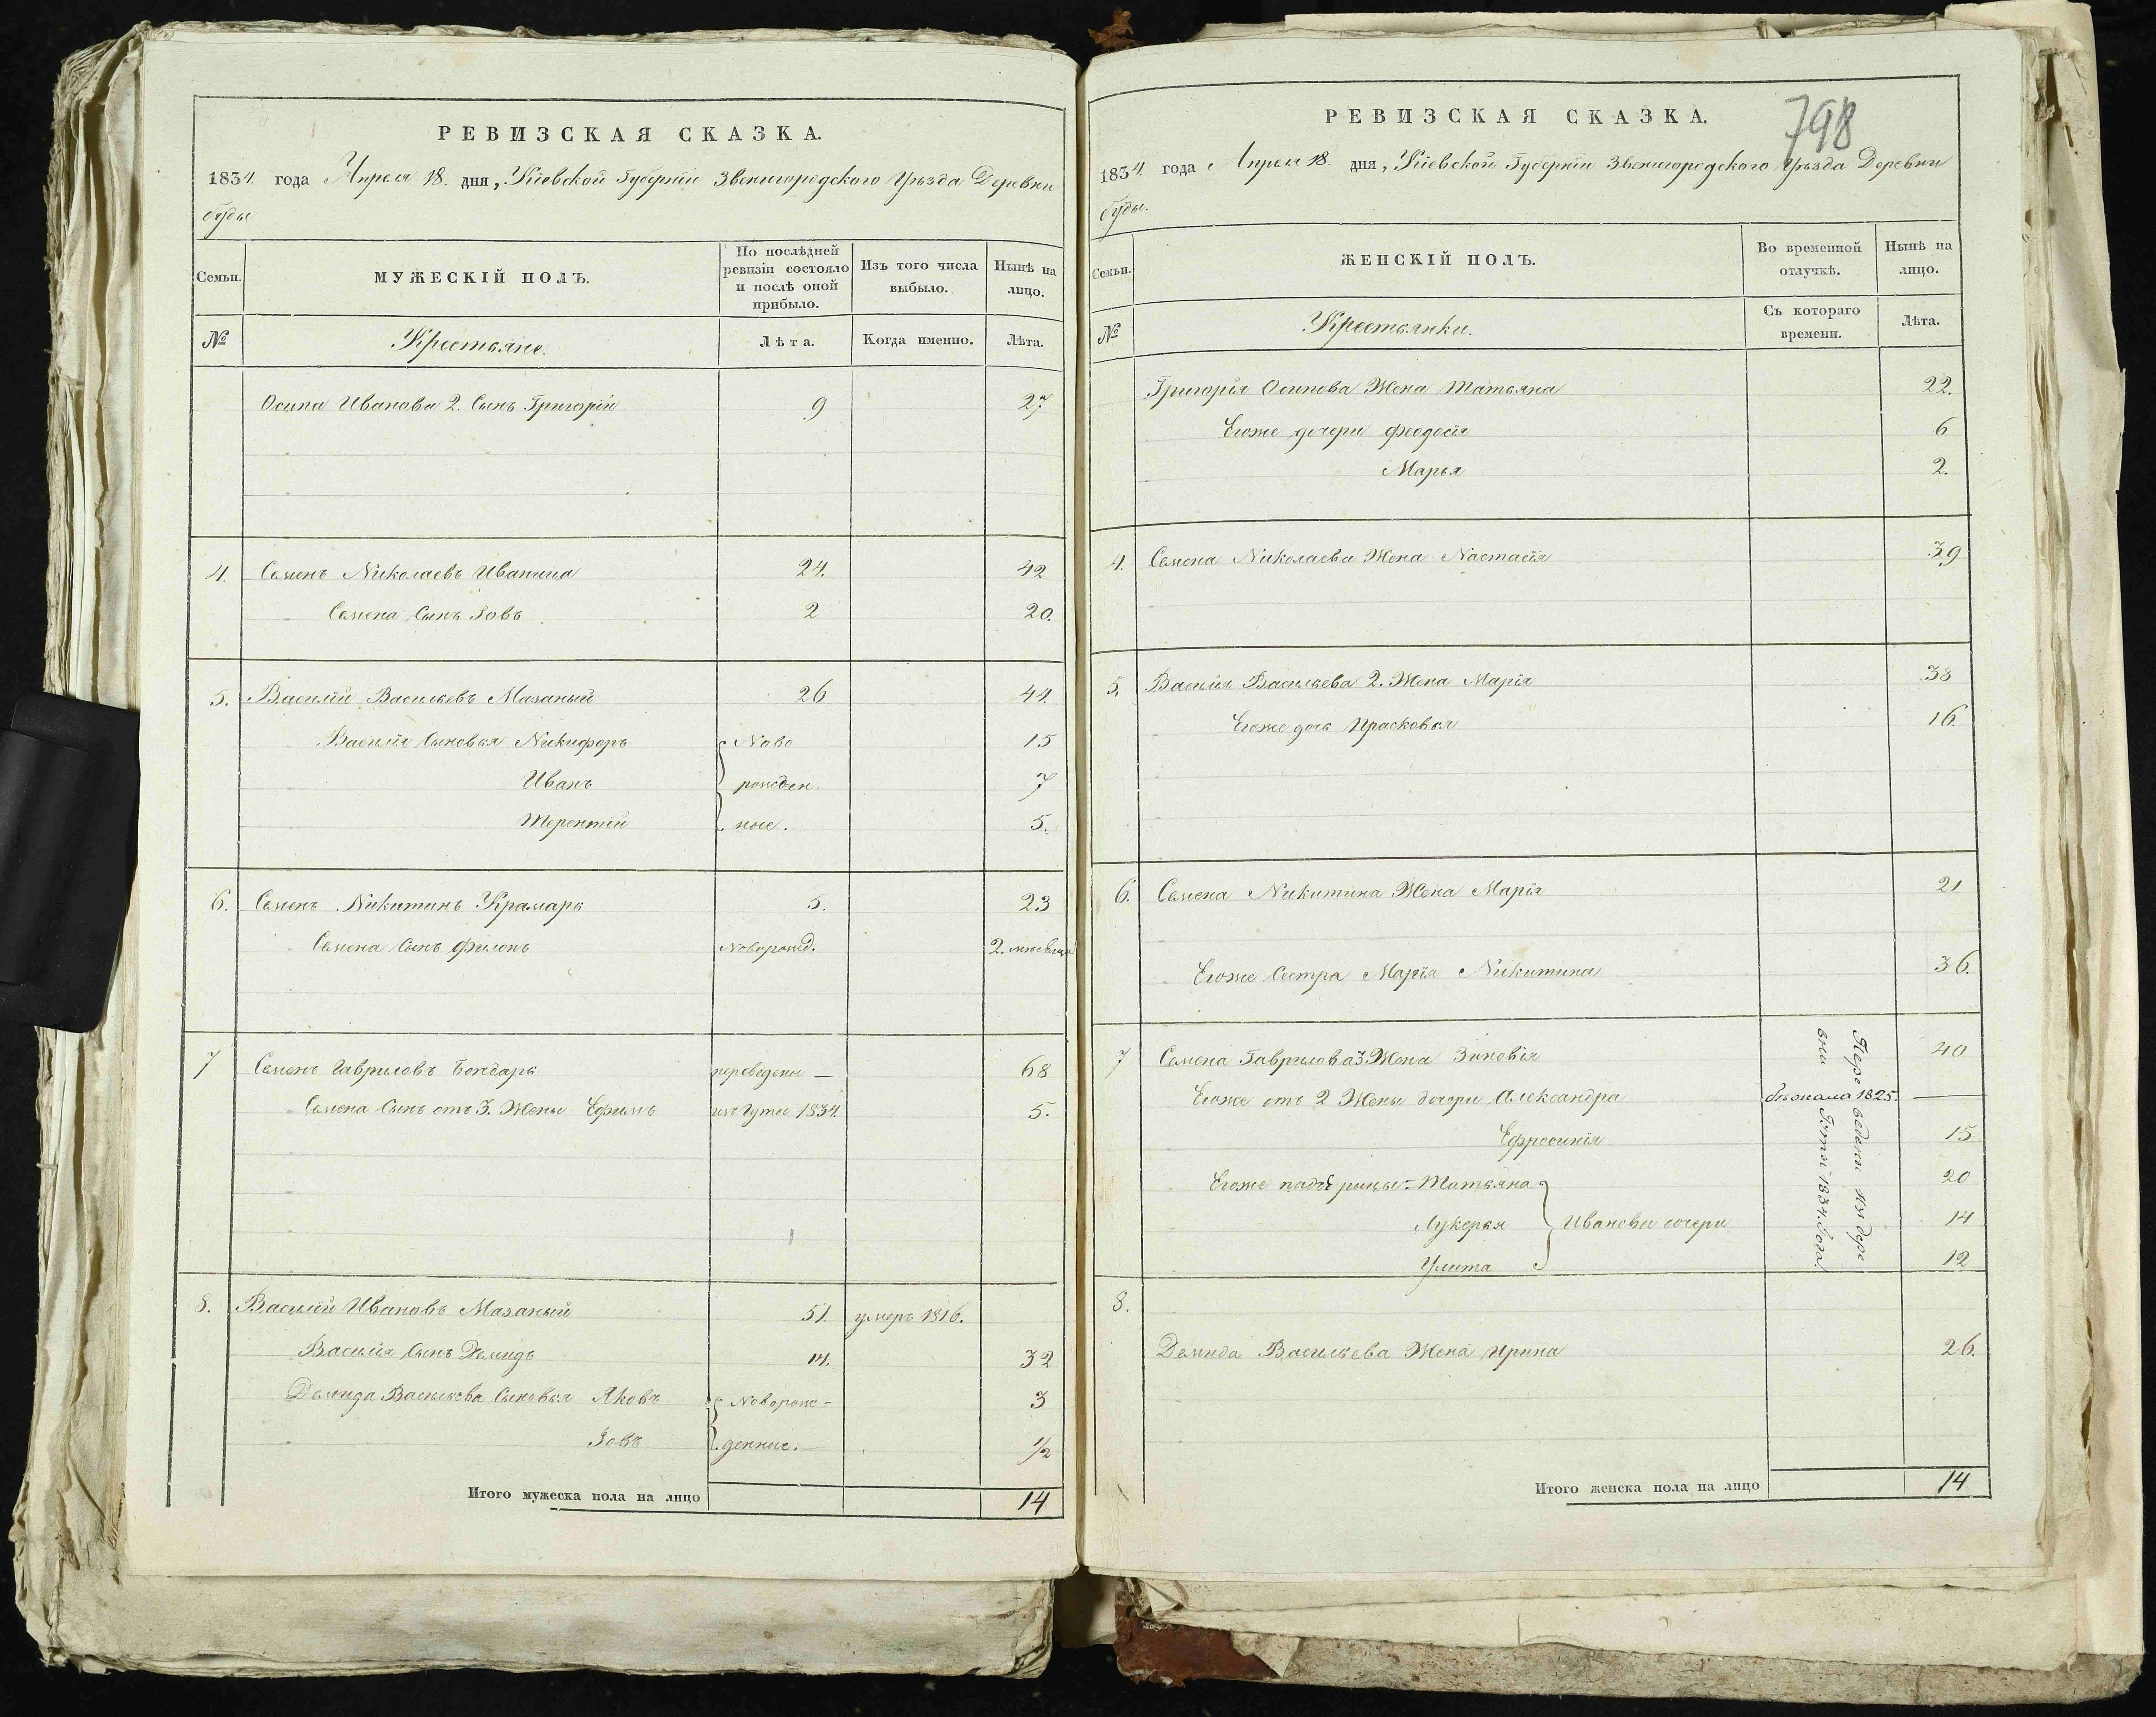 РЕВИЗСКАЯ СКАЗКА.
1834. года Апреля 18. дня, Кіевской Губерніи Звенигородского Уѣзда Деревни
буды
Семьи. МУЖЕСКІЙ ПОЛЪ. По послѣдней ревизіи состояло и послѣ оной прибыло. Изъ того числа выбыло. Нынѣ на лицо.
№ Крестьяне. Лѣта. Когда именно. Лѣта.
Осипа Иванова 2. Сынъ Григорій 9 27
4. Семенъ Николаевъ Иванина 24. 42
Семена Сынъ Іовъ 2 20.
5. Василій Васильевъ Мазаный 26 44.
Василія Сыновья Никифоръ Ново 15
Иванъ рожден. 7
Терентій ные. 5.
6. Семенъ Никитинъ Крамарь 5. 23
Семена Сынъ Филонъ Новорожд. 2. месяца
7 Семенъ Гавриловъ Бондарь переведеные — 68
Семена Сынъ отъ 3. Жены Ефимъ изъ Гуты 1834. 5.
8. Василій Ивановъ Мазаный 51. умеръ 1816.
Василія Сынъ Демидъ 14. 32
Демида Васильева Сыновья Яковъ Новорож- 3
Іовъ денные. 1/2
Итого мужеска пола на лицо 14
798
РЕВИЗСКАЯ СКАЗКА.
1834. года Апреля 18. дня, Кіевской Губерніи Звенигородского Уѣзда Деревни
буды.
Семьи. ЖЕНСКІЙ ПОЛЪ. Во временной отлучкѣ. Нынѣ на лицо.
№ Крестьянки. Съ котораго времени. Лѣта.
Григорія Осипова Жена Татьяна 22.
Егоже дочери Феодосія 6
Марья 2.
4. Семена Николаева Жена Настасія 39
5. Василія Васильева 2. Жена Марія 38
Егоже дочь Прасковья 16.
6. Семена Никитина Жена Марія 21
Егоже Сестра Марія Никитина 36.
7 Семена Гаврилова 3. Жена Зиновія 40
Егоже отъ 2 Жены дочери Александра бѣжала 1825. —
Ефросинія 15
Егоже падчерицы - Татьяна 20
Лукерья Ивановы дочери 14
Улита 12
Переведены изъ дере
вни Гуты 1834. Года
8.
Демида Васильева Жена Ирина 26.
Итого женска пола на лицо 14